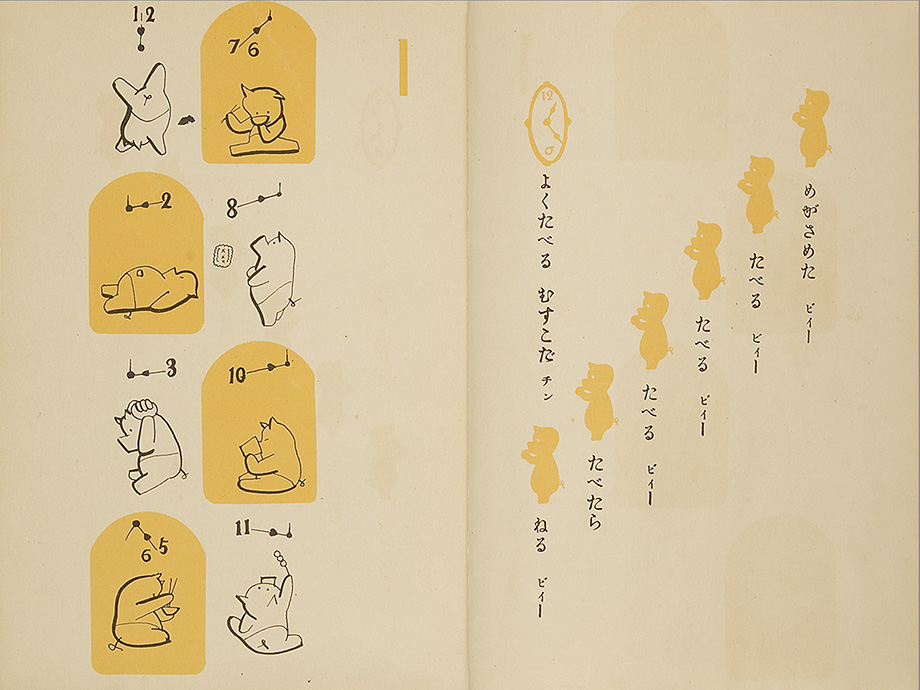 めがさめた ピイー
たべる ピイー
たべる ピイー
たべる ピイー
たべたら
ねる ピイー
12
6
よくたべる むすこだ チン
7 6
8
10
11
12
2
3
6 5